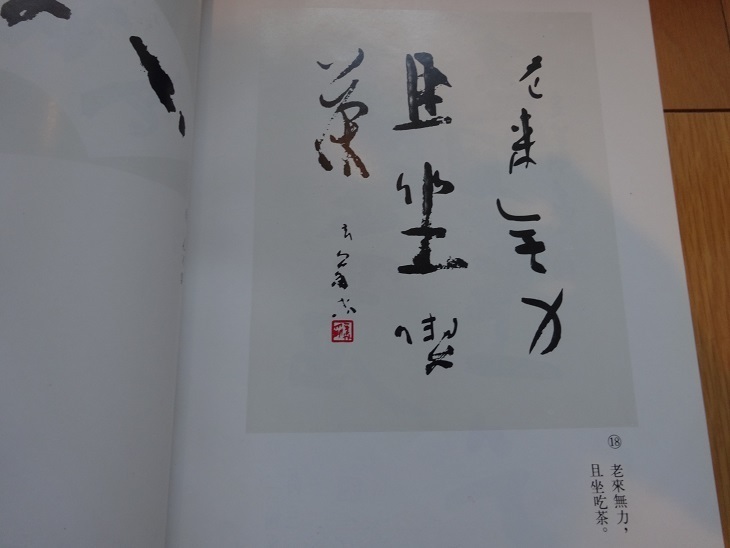 老來無力
且坐喫
茶
⑱ 老來無力，
且坐吃茶。